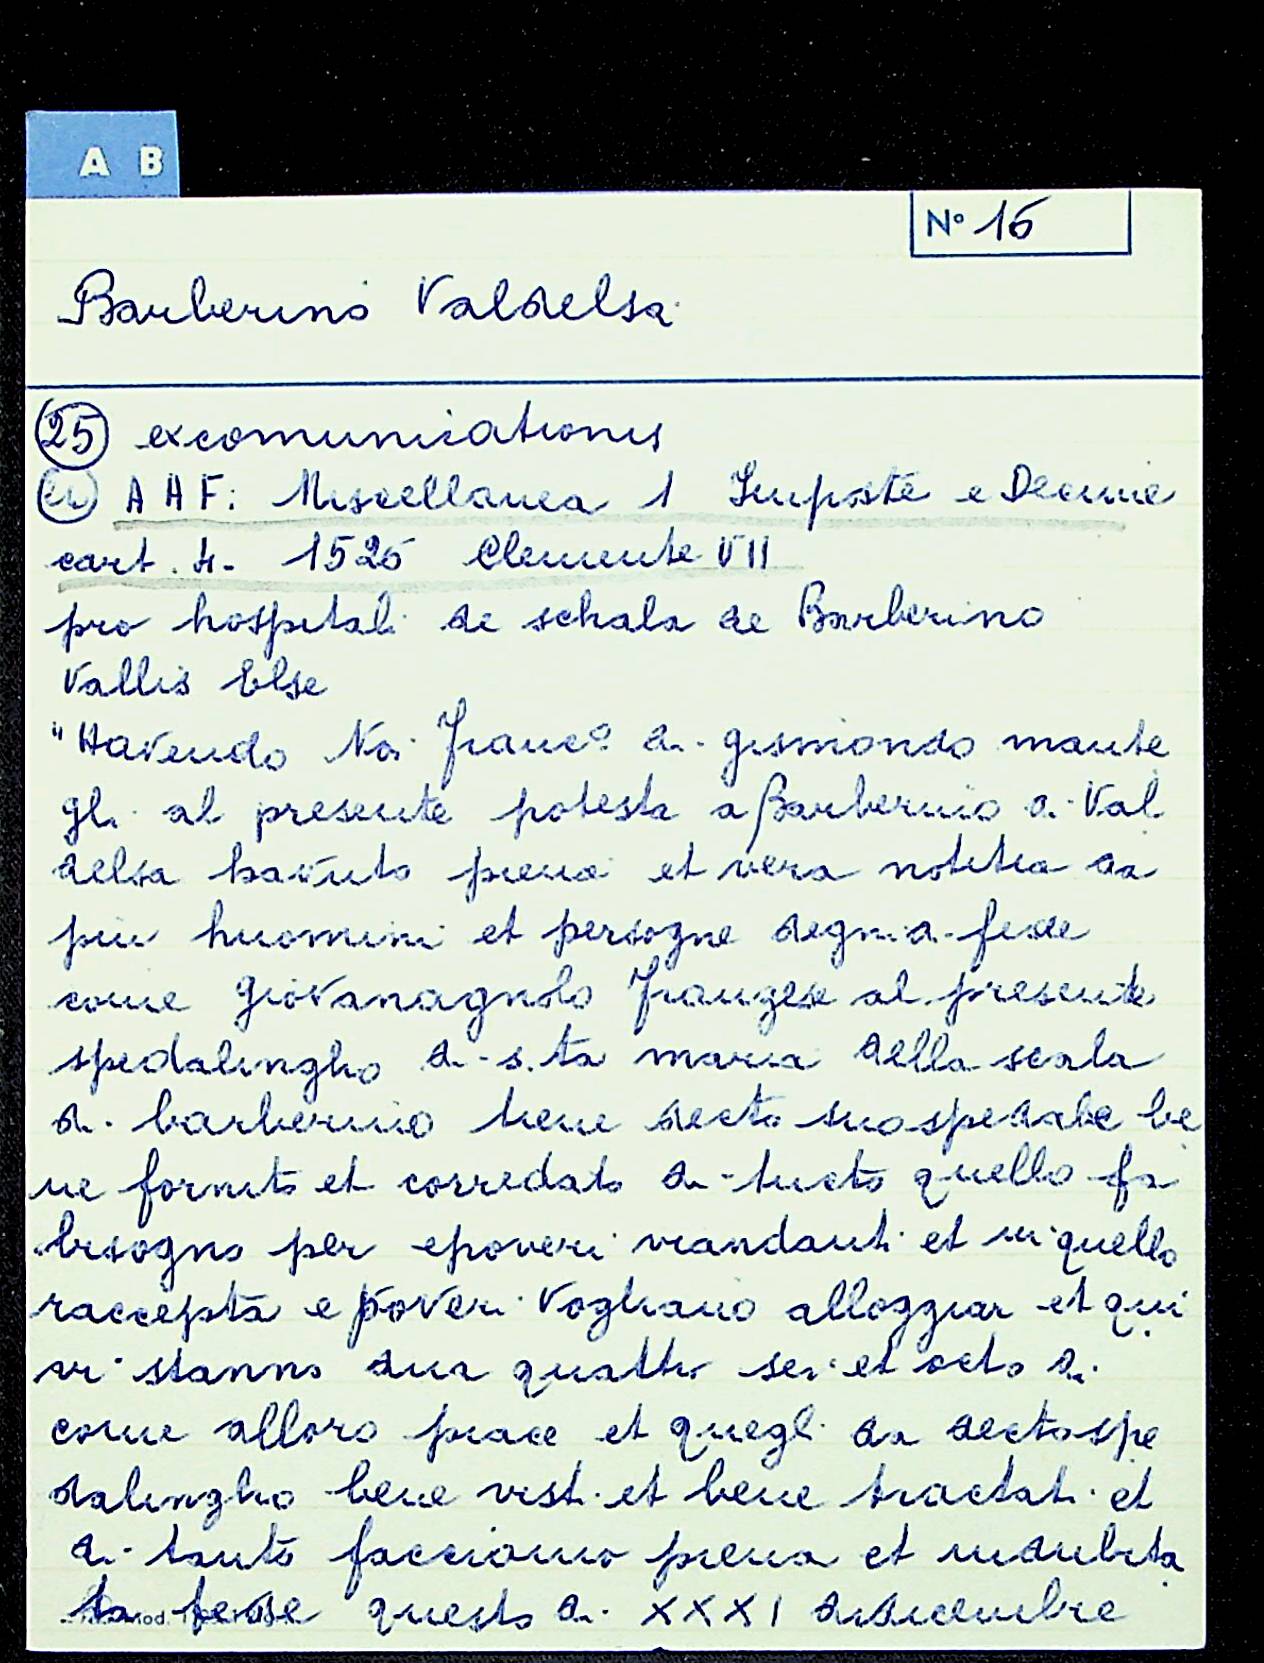 A B
N° 16
Barberino Valdelsa
25 excomunicationis
AAF: Miscellanea 1 Imposte e Decime
cart. 4. 1526 Clemente VII
pro hospitali de schala de Barberino
Vallis Else
"Havendo Noi Franc° di gismondo mante
gli al presente potesta a Barberino di Val
delsa havuto piena et vera notitia da
piu huomini et persogne degni di fede
come Giovanagnolo franzese al presente
spedalingho di s.ta maria della scala
di barberino tiene decto suo spedale be
ne fornito et corredato di tucto quello fa
bisogno per epoveri viandanti et in quello
raccepta e poveri vogliano alloggiar et qui
vi stanno dua quattro sei et octo di
come alloro piace et quegli da decto spe
dalingho bene visti et bene tractati et
di tanto facciamo piena et indubita
ta fede questo di XXXI di dicembre